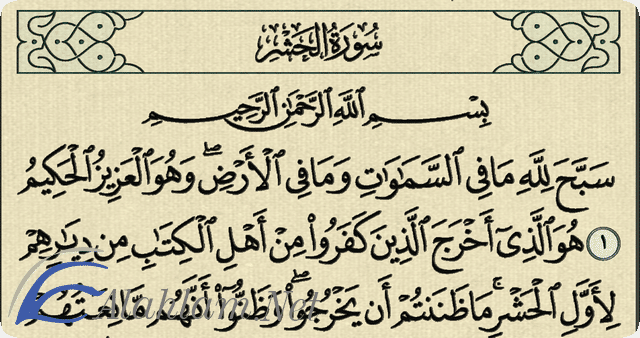 سُورَةُ الحَشْرِ
بِسْمِ ٱللَّهِ ٱلرَّحْمَٰنِ ٱلرَّحِيمِ
سَبَّحَ لِلَّهِ مَا فِي ٱلسَّمَٰوَٰتِ وَمَا فِي ٱلْأَرْضِ ۖ وَهُوَ ٱلْعَزِيزُ ٱلْحَكِيمُ
١ هُوَ ٱلَّذِىٓ أَخْرَجَ ٱلَّذِينَ كَفَرُوا۟ مِنْ أَهْلِ ٱلْكِتَٰبِ مِن دِيَٰرِهِمْ
لِأَوَّلِ ٱلْحَشْرِ ۚ مَا ظَنَنتُمْ أَن يَخْرُجُوا۟ ۖ وَظَنُّوٓا۟ أَنَّهُم مَّانِعَتُهُمْ
Alahlam.Net